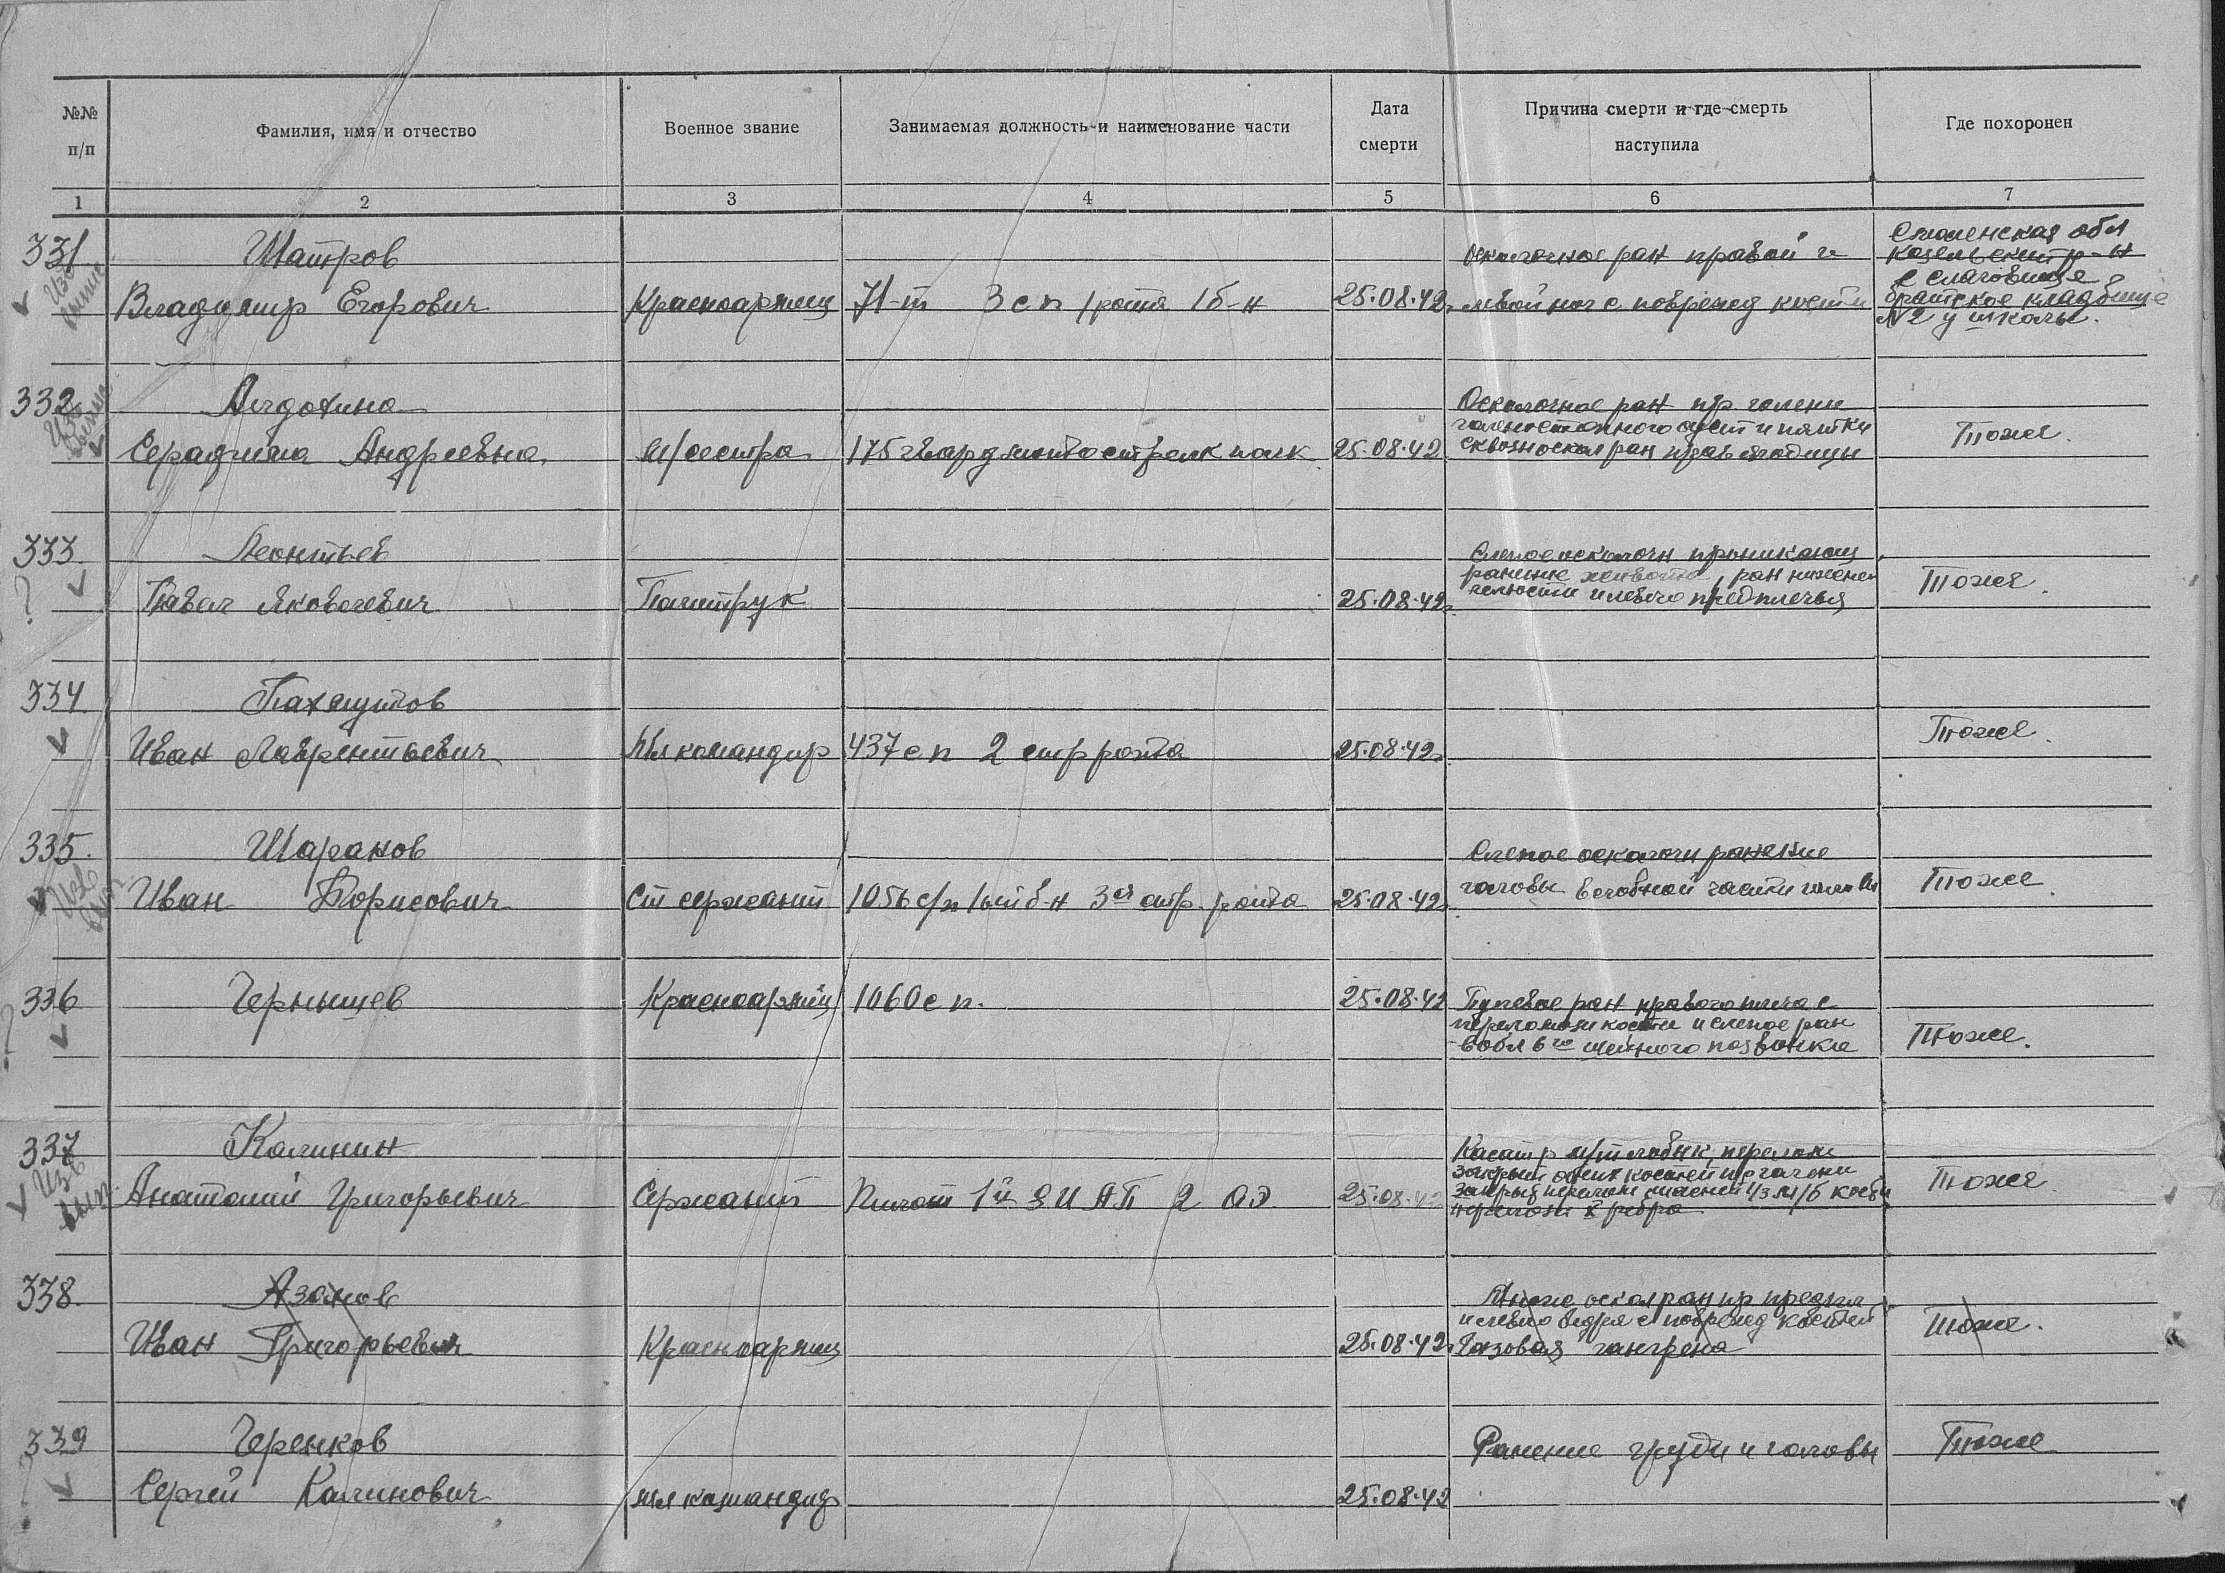 №№ п/п
Фамилия, имя и отчество
Военное звание
Занимаемая должность и наименование части
Дата смерти
Причина смерти и где смерть наступила
Где похоронен
1 2 3 4 5 6 7
331
Шатров
Владимир Егорович
Красноармеец
71-п 3 сп 1 рота 1 б-н
25.08.42г
Осколочное ран правой и
левой ног с поврежд кости
Смоленская обл
Козельский р-н
с
братское кладбище
№2 у школы.
332
Серафима Андреевна
м/сестра
175 стрелк полк
25.08.42
Осколочное ран пр. голени
голеностопного суст и пятки
сквозн оскол ран прав ягодицы
Тоже.
333.
Леонтьев
Павел Яковлевич
Политрук
25.08.42г
Слепое осколочн проникающ
ранение живота, ран нижней
челюсти и левого предплечья
Тоже.
334.
Иван Лаврентьевич
Мл командир
437 сп 2 стр рота
25.08.42г
Тоже.
335.
Шаранов
Иван Борисович
Ст сержант
1056 с/п 1ый б-н 3ья стр. рота
25.08.42г
Слепое осколочн ранение
головы в лобной части
Тоже.
336
Чернышев
Красноармеец
1060 с п.
25.08.42
Пулевое ран правого плеча с
переломом кости и слепое ран
в обл 6го шейного позвонка
Тоже.
337
Изв
вып.
Калинин
Анатолий Григорьевич
Сержант
Пилот 1й З И А П 2 АЭ
25.08.42
перелом
костей пр голени
перелом X ребра
Тоже
338.
Азанов
Иван Григорьевич
Красноармеец
25.08.42г
Множ оскол ран пр предпл
и левого бедра с поврежд костей
Газовая гангрена
Тоже.
339
Черенков
Сергей Калинович
мл командир
25.08.42
Ранение груди и головы
Тоже